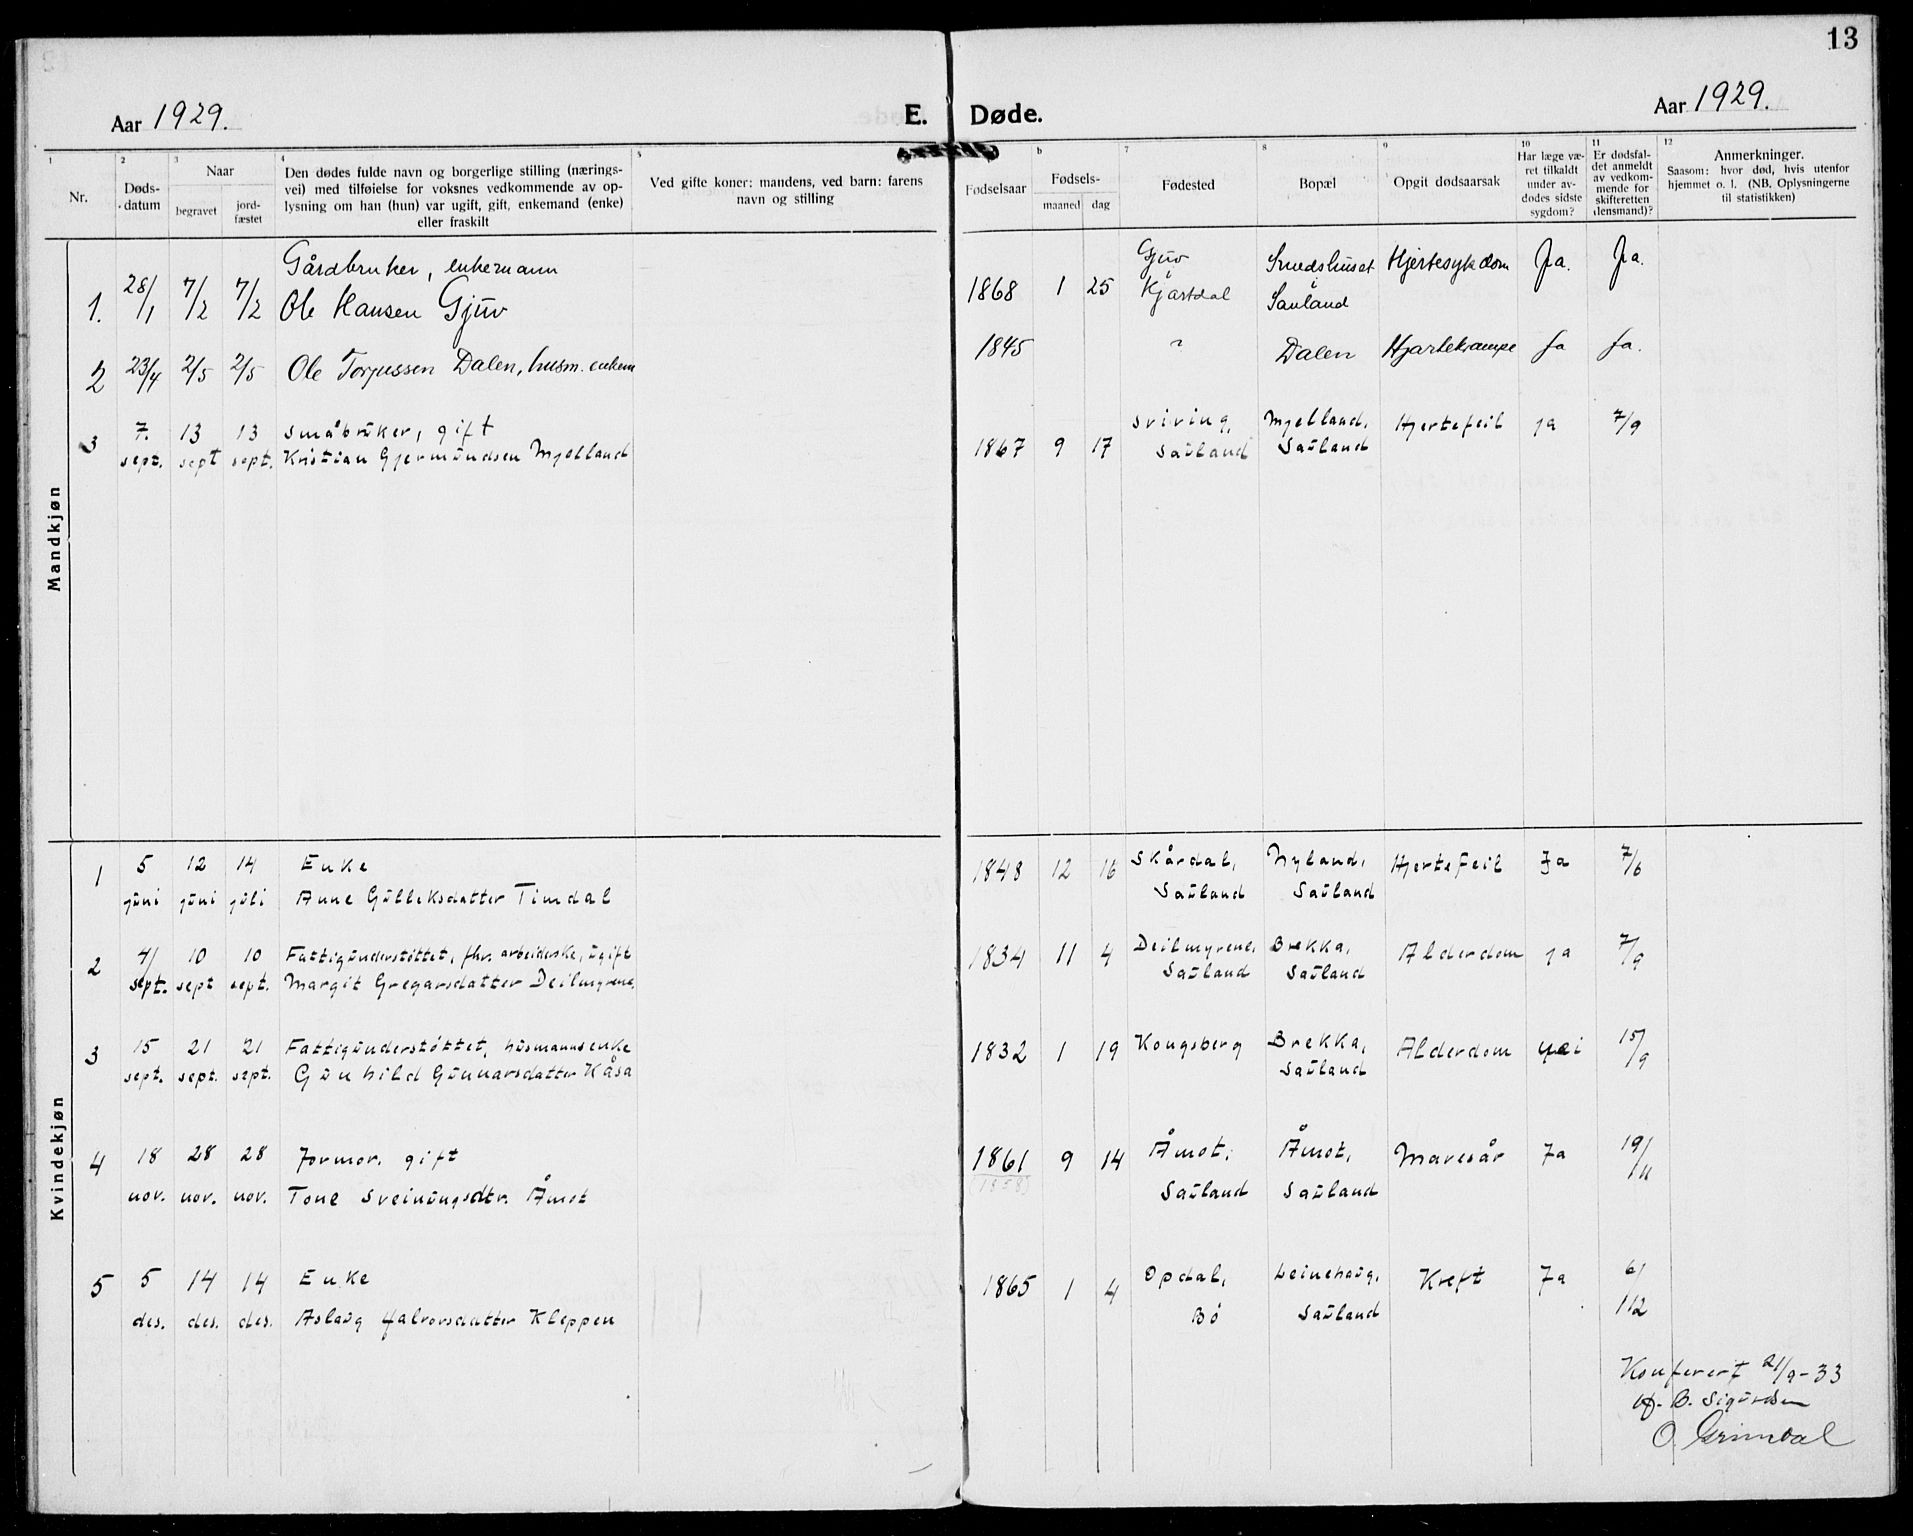 13
Aar 1929.
E. Døde.
Aar 1929.
1
2
3
4
5
6
7
8
9
10
11
12
Nr.
Døds-
datum
Naar
begravet
jord-
fæstet
Den dødes fulde navn og borgerlige stilling (nærings-
vei) med tilføielse for voksnes vedkommende av op-
lysning om han (hun) var ugift, gift, enkemand (enke)
eller fraskilt
Ved gifte koner: mandens, ved barn: farens
navn og stilling
Fødselsaar
Fødsels-
maaned
dag
Fødested
Bopæl
Opgit dødsaarsak
Har læge væ-
ret tilkaldt
under av-
dødes sidste
sygdom?
Er dødsfal-
det anmeldt
av vedkom-
mende for
skifteretten
(lensmand)?
Anmerkninger.
Saasom: hvor død, hvis utenfor
hjemmet o. l. (NB. Oplysningerne
til statistikken)
Mandkjøn
Gårdbruker, enkemann Gjuv Smedshuset Hjertesykdom Ja. Ja.
1. 28/1 7/2 7/2 Ole Hansen Gjuv 1868 1 25 i Sauland
2 23/4 2/5 2/5 Ole Torjussen Dalen, husm. enkem 1845 Dalen Hjartekrampe Ja Ja.
3 7. 13 13 småbruker, gift Sviving, Mjelland, Hjertefeil ja 7/9
sept. sept sept. Kristian Gjermundsen Mjelland 1867 9 17 Sauland Sauland
Kvindekjøn
1 5 12 14 Enke 1848 12 16 Skårdal, Nyland, Hjertefeil Ja 7/6
juni juni juli Anne Gulleksdatter Timdal Sauland Sauland
2 4/ 10 10 Fattigunderstøttet, fhv. arbeiderske, ugift 1834 11 4 Deilmyrene, Brekka, Alderdom ja 7/9
sept. sept sept. Margit Gregarsdatter Deilmyrene. Sauland Sauland
3 15 21 21 Fattigunderstøttet, husmannsenke 1832 1 19 Kongsberg Brekka, Alderdom nei 15/9
sept. sept. sept. Gunhild Gunnarsdatter Kåsa Sauland
4 18 28 28 Jormor, gift 1861 9 14 Åmot, Åmot, Mavesår Ja 19/11
nov. nov. nov. Tone Sveinungsdtr. Åmot (1858) Sauland Sauland
5 5 14 14 Enke 1865 1 4 Opdal, Leinehaug, Kreft Ja 6/12
des. des. des. Aslaug Halvorsdatter Kleppen Bø Sauland
Konferert 21/9-33
B. Sigurdsen
O. Grimdal